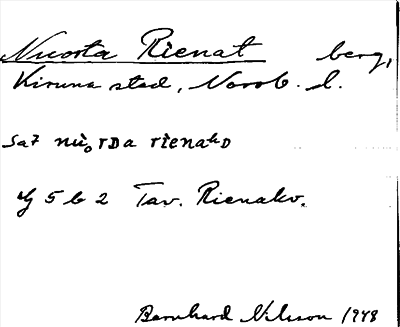 Nuorta Rienat berg,
Kiruna stad, Norrb. l.
sa7 nu̇ₒrDa rienaᵏo
Tav. Rienakv.
Bernhard Nilsson 1948